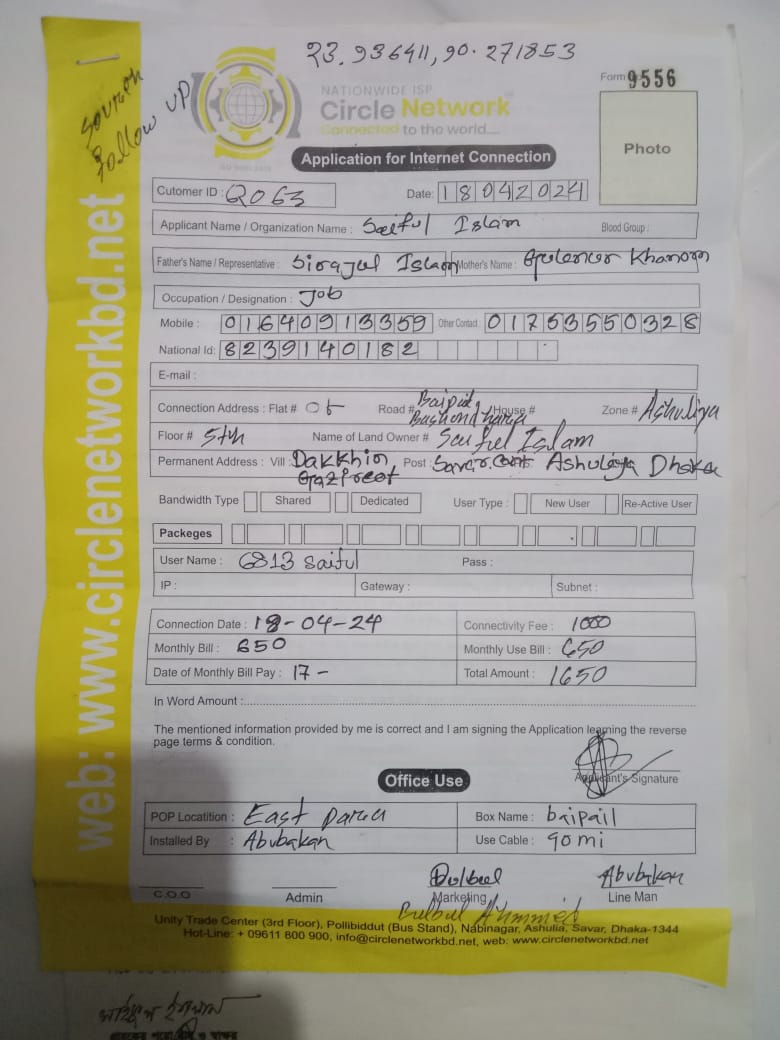 23.936411, 90.271853
Sourav
Follow UP
NATIONWIDE ISP
Circle Network
Connected to the world....
Form 9556
Photo
Application for Internet Connection
Cutomer ID : Q063 Date: 18042024
Applicant Name / Organization Name : Saiful Islam Blood Group :
Father's Name / Representative : Sirajul Islam Mother's Name : Gulenur Khanom
Occupation / Designation : Job
Mobile : 01640913359 Other Contact 01753550328
National Id: 8239140182
E-mail :
Connection Address : Flat # 05 Road # Baipail Bashondhara House # Zone # Ashuliya
Floor # 5th Name of Land Owner # Saiful Islam
Permanent Address : Vill : Dakkhin Gazircot Post : Savar. Cant Ashulaya Dhaka
Bandwidth Type Shared Dedicated User Type : New User Re-Active User
Packeges
User Name : 6813 saiful Pass :
IP : Gateway : Subnet :
Connection Date : 18-04-24 Connectivity Fee : 1000
Monthly Bill : 650 Monthly Use Bill : 650
Date of Monthly Bill Pay : 17 - Total Amount : 1650
In Word Amount :
The mentioned information provided by me is correct and I am signing the Application learning the reverse
page terms & condition.
Applicant's Signature
Office Use
POP Locatition : East Para Box Name : baipail
Installed By : Abubakar Use Cable : 90 mi
C.O.O Admin Bulbul Marketing Abubakar Line Man
Bulbul Ahmmed
Unity Trade Center (3rd Floor), Pollibiddut (Bus Stand), Nabinagar, Ashulia, Savar, Dhaka-1344
Hot-Line: + 09611 800 900, info@circlenetworkbd.net, web: www.circlenetworkbd.net
web: www.circlenetworkbd.net